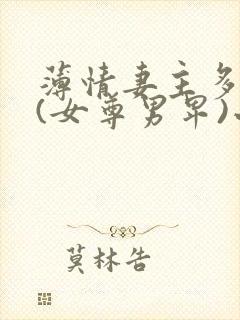 薄情妻主多
(女尊男卑)
莫林告